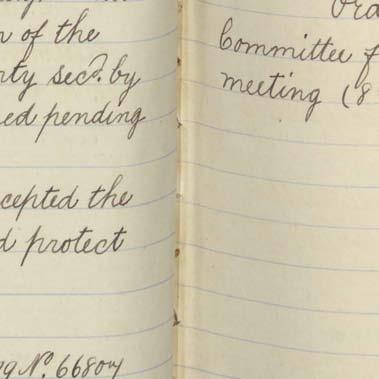 n of the
rty secd. by
ed pending
cepted the
d protect
g No. 66804
Ora
Committee f
meeting (8